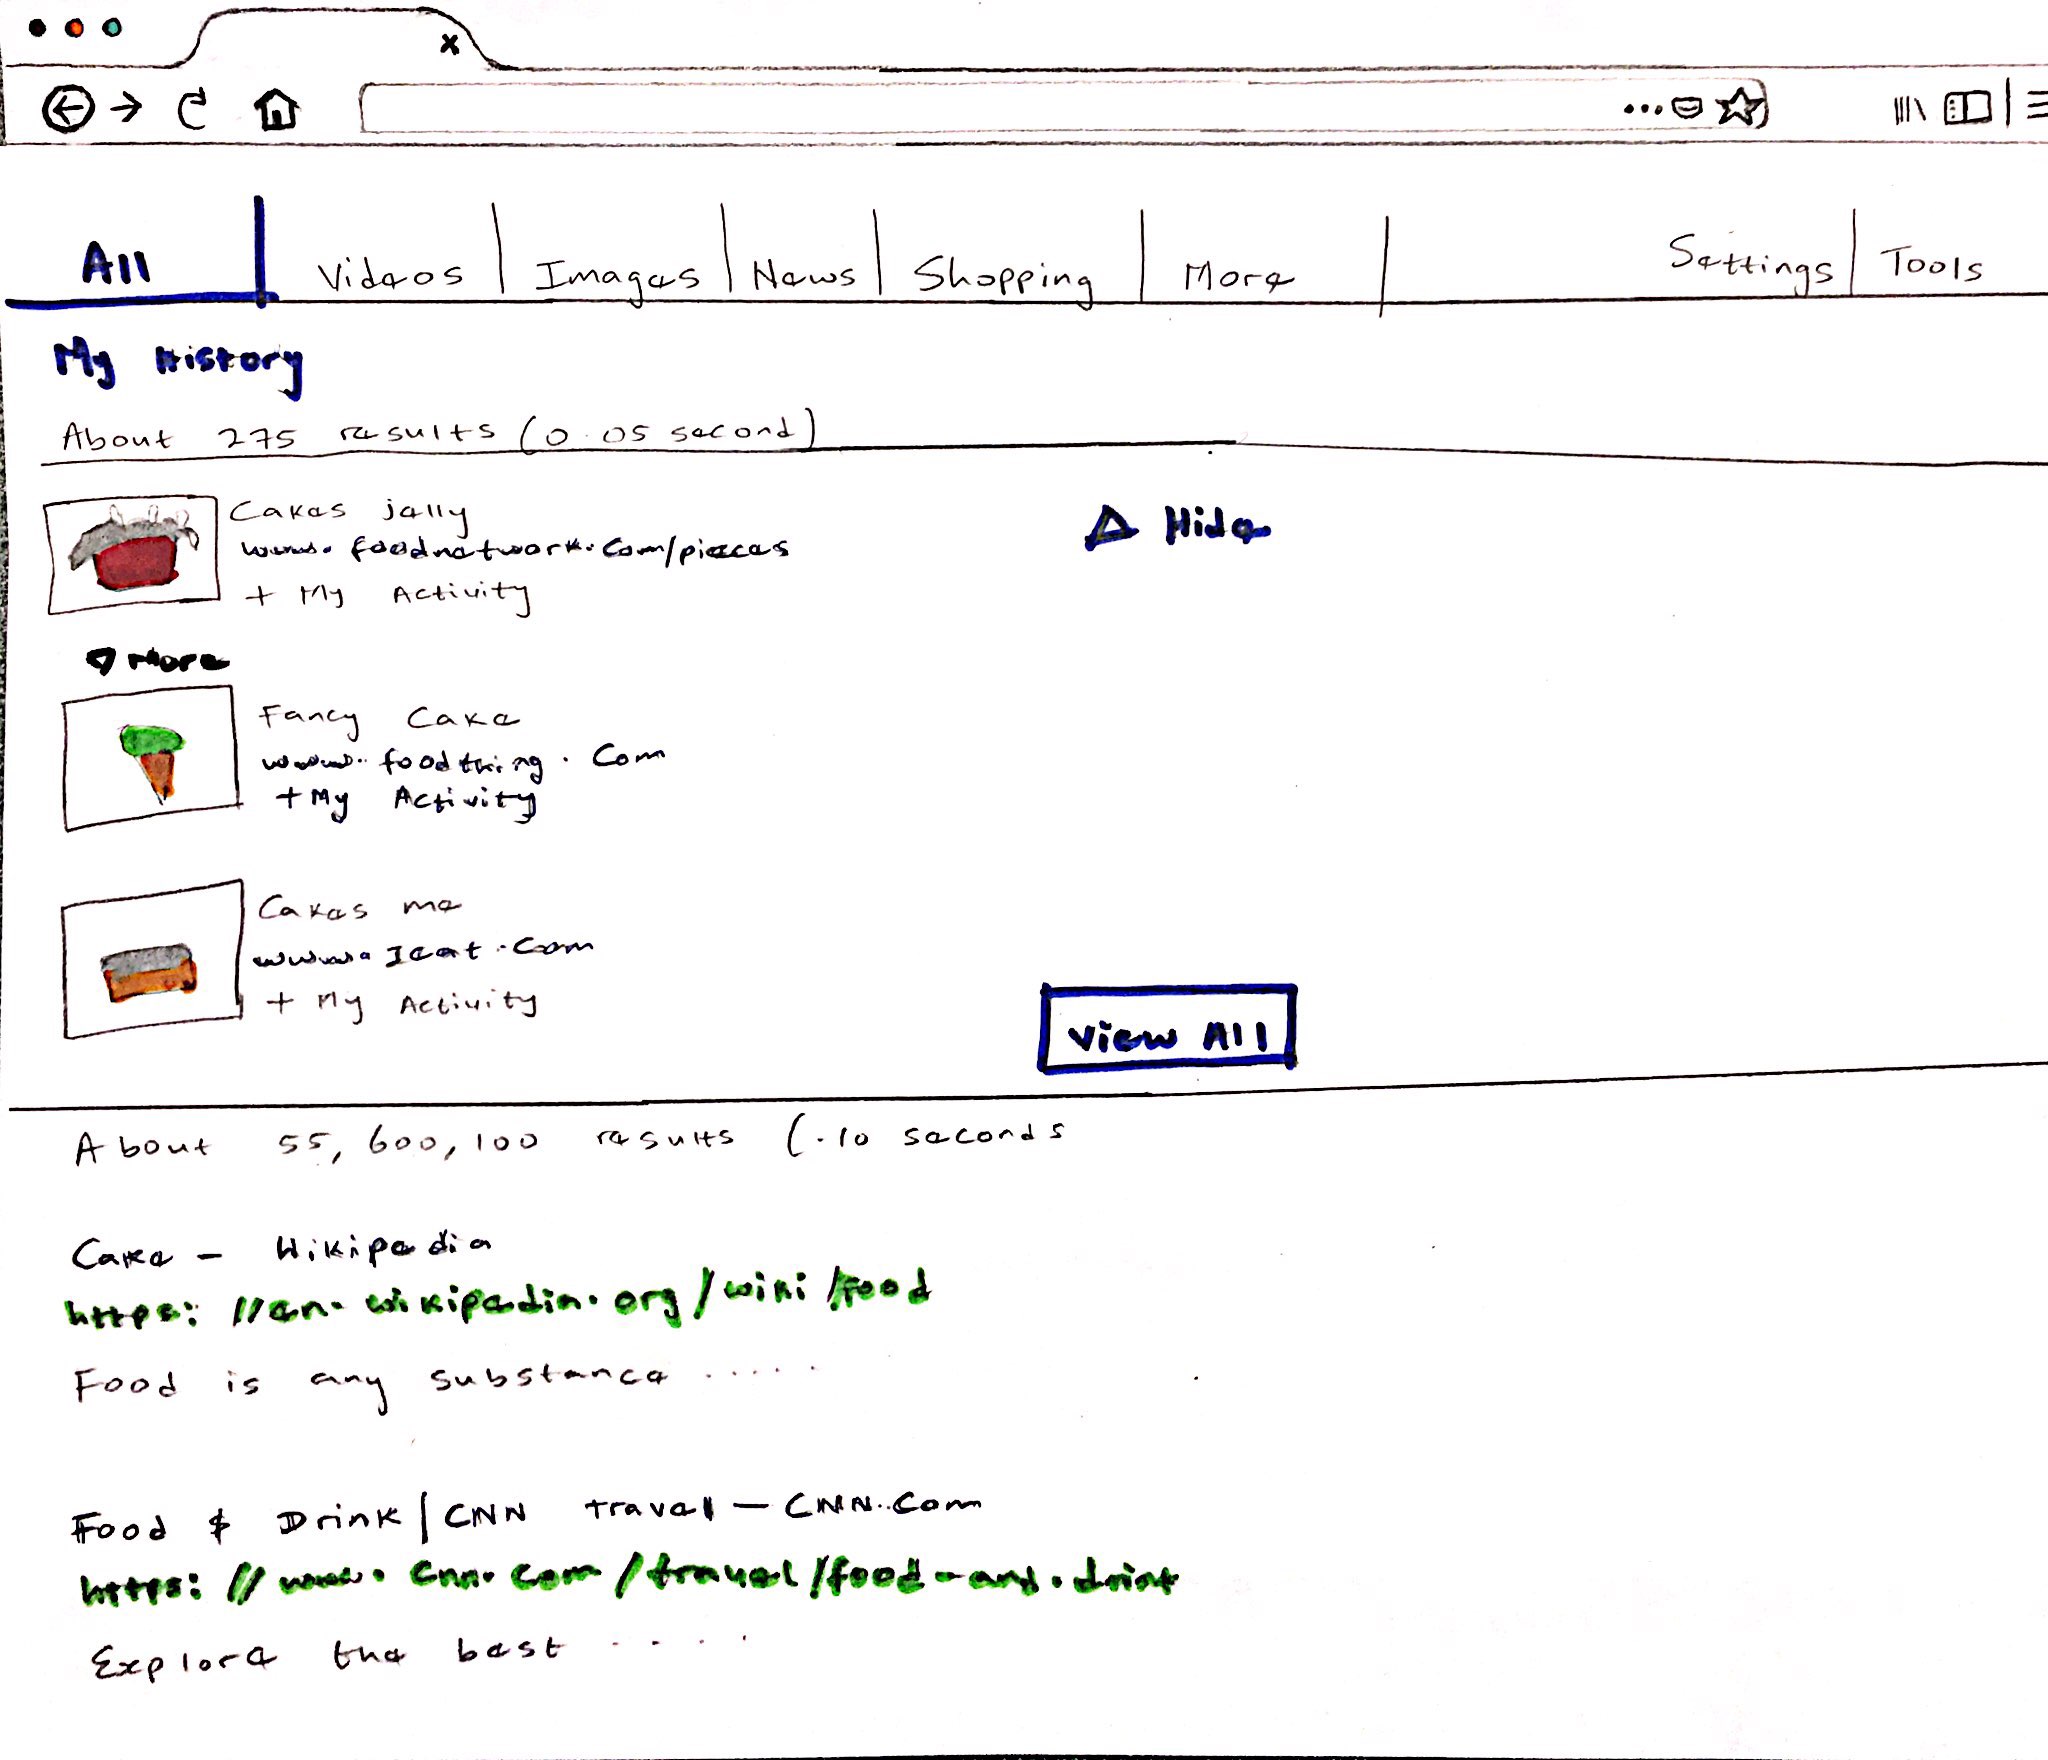 x
All Videos Images News Shopping More Settings Tools
My History
About 275 results (0.05 second)
Cakes jelly
www.foodnetwork.com/pieces
+ My Activity
Hide
More
Fancy Cake
www.foodthing.com
+ My Activity
Cakes me
www.Ieat.com
+ My Activity
View All
About 55,600,100 results (.10 seconds
Cake - Wikipedia
https://en.wikipedia.org/wiki/food
Food is any substance .....
Food & Drink | CNN travel - CNN.com
https://www.cnn.com/travel/food-and.drink
Explore the best ....